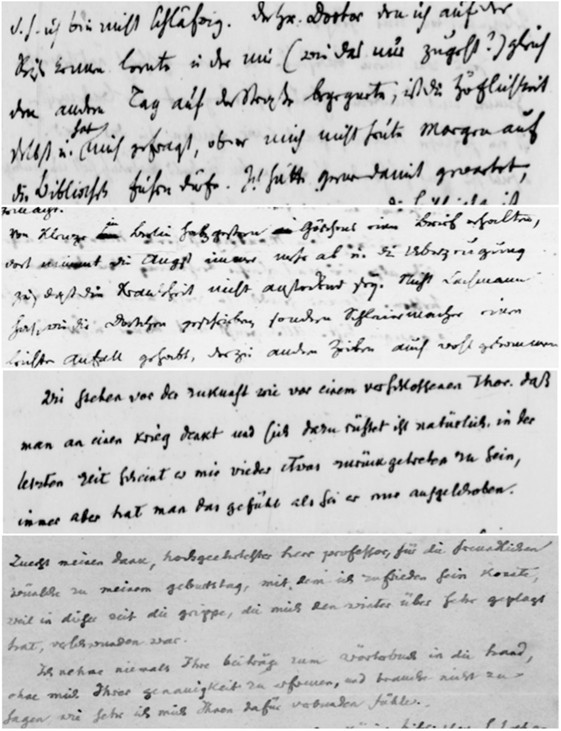 d. h. ich bin nicht schläfrig. Der Hr. Doctor den ich auf der
lernte in der mir (wie das nur zugeht?) gleich
den andern Tag auf der Straße begegnete, ist die Höflichkeit
selbst u. hat mich gefragt, ob er mich nicht heute Morgen auf
die Bibliothek führen dürfe. Ich hätte gerne damit gewartet,
Von Klenze Berlin hat gestern Göschens einen Brief erhalten,
dort nimmt die Angst immer mehr ab u. die Überzeugung
zu, daß die Krankheit nicht ansteckend sey. Nicht Lachmann
hat, wie die Dortchen geschrieben, sondern Schleiermacher einen
leichten Anfall gehabt, der zu andern Zeiten auch wohl gekommen
Wir stehen vor der zukunft wie vor einem verschlossenen Thor. daß
man an einen krieg denkt und sich dazu rüstet ist natürlich. in der
letzten zeit scheint es mir wieder etwas zurückgetreten zu sein,
immer aber hat man das gefühl als sei er nur aufgeschoben.
Zuerst meinen dank, hochgeehrtester herr professor, für die freundlichen
wünsche zu meinem geburtstag, mit dem ich zufrieden sein konnte,
weil in dieser zeit die grippe, die mich den winter über sehr geplagt
hat, verschwunden war.
Ich nehme niemals Ihre beiträge zum wörterbuch in die hand,
ohne mich Ihrer genauigkeit zu erfreuen, und brauche nicht zu
sagen wie sehr ich mich Ihnen dafür verbunden fühle.